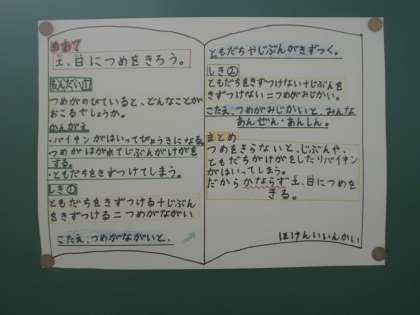 めあて
土、日につめをきろう。
もんだい①
つめがのびていると、どんなことが
おこるでしょうか。
かんがえ
・バイキンがはいってびょうきになる。
つめがはがれてじぶんがけがを
する。
・ともだちをきずつけてしまう。
しき①
ともだちをきずつける+じぶん
をきずつける=つめがながい
こたえ、つめがながいと、
ともだちやじぶんがきずつく。
しき②
ともだちをきずつけない+じぶんを
きずつけない=つめがみじかい。
こたえ、つめがみじかいと、みんな
あんぜん・あんしん。
まとめ
つめをきらないと、じぶんや、
ともだちがけがをしたりバイキン
がはいってしまう。
だからかならず土、日につめを
きる。
ほけんいいんかい